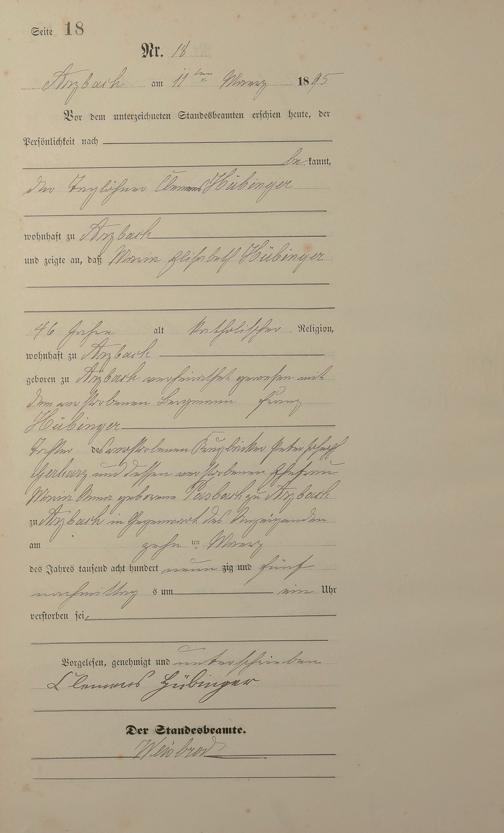 Seite 18
Nr. 18
Arzbach am 11ten Maerz 1895
Vor dem unterzeichneten Standesbeamten erschien heute, der
Persönlichkeit nach
bekannt,
der Taglöhner Clemens Hübinger
wohnhaft zu Arzbach
und zeigte an, daß Maria Elisabeth Hübinger
46 Jahre alt katholischer Religion,
wohnhaft zu Arzbach
geboren zu Arzbach verheirathet gewesen mit
dem verstorbenen Bergmann Franz
Hübinger
Tochter des verstorbenen Krugbäcker Peter Joseph
Gerharz und dessen verstorbenen Ehefrau
Maria Anna geborene zu Arzbach
zu Arzbach in Gegenwart des Anzeigenden
am zehnten Maerz
des Jahres tausend acht hundert neunzig und fünf
nachmittags um ein Uhr
verstorben sei.
Vorgelesen, genehmigt und unterschrieben
Clemens Hübinger
Der Standesbeamte.
Weisbrod